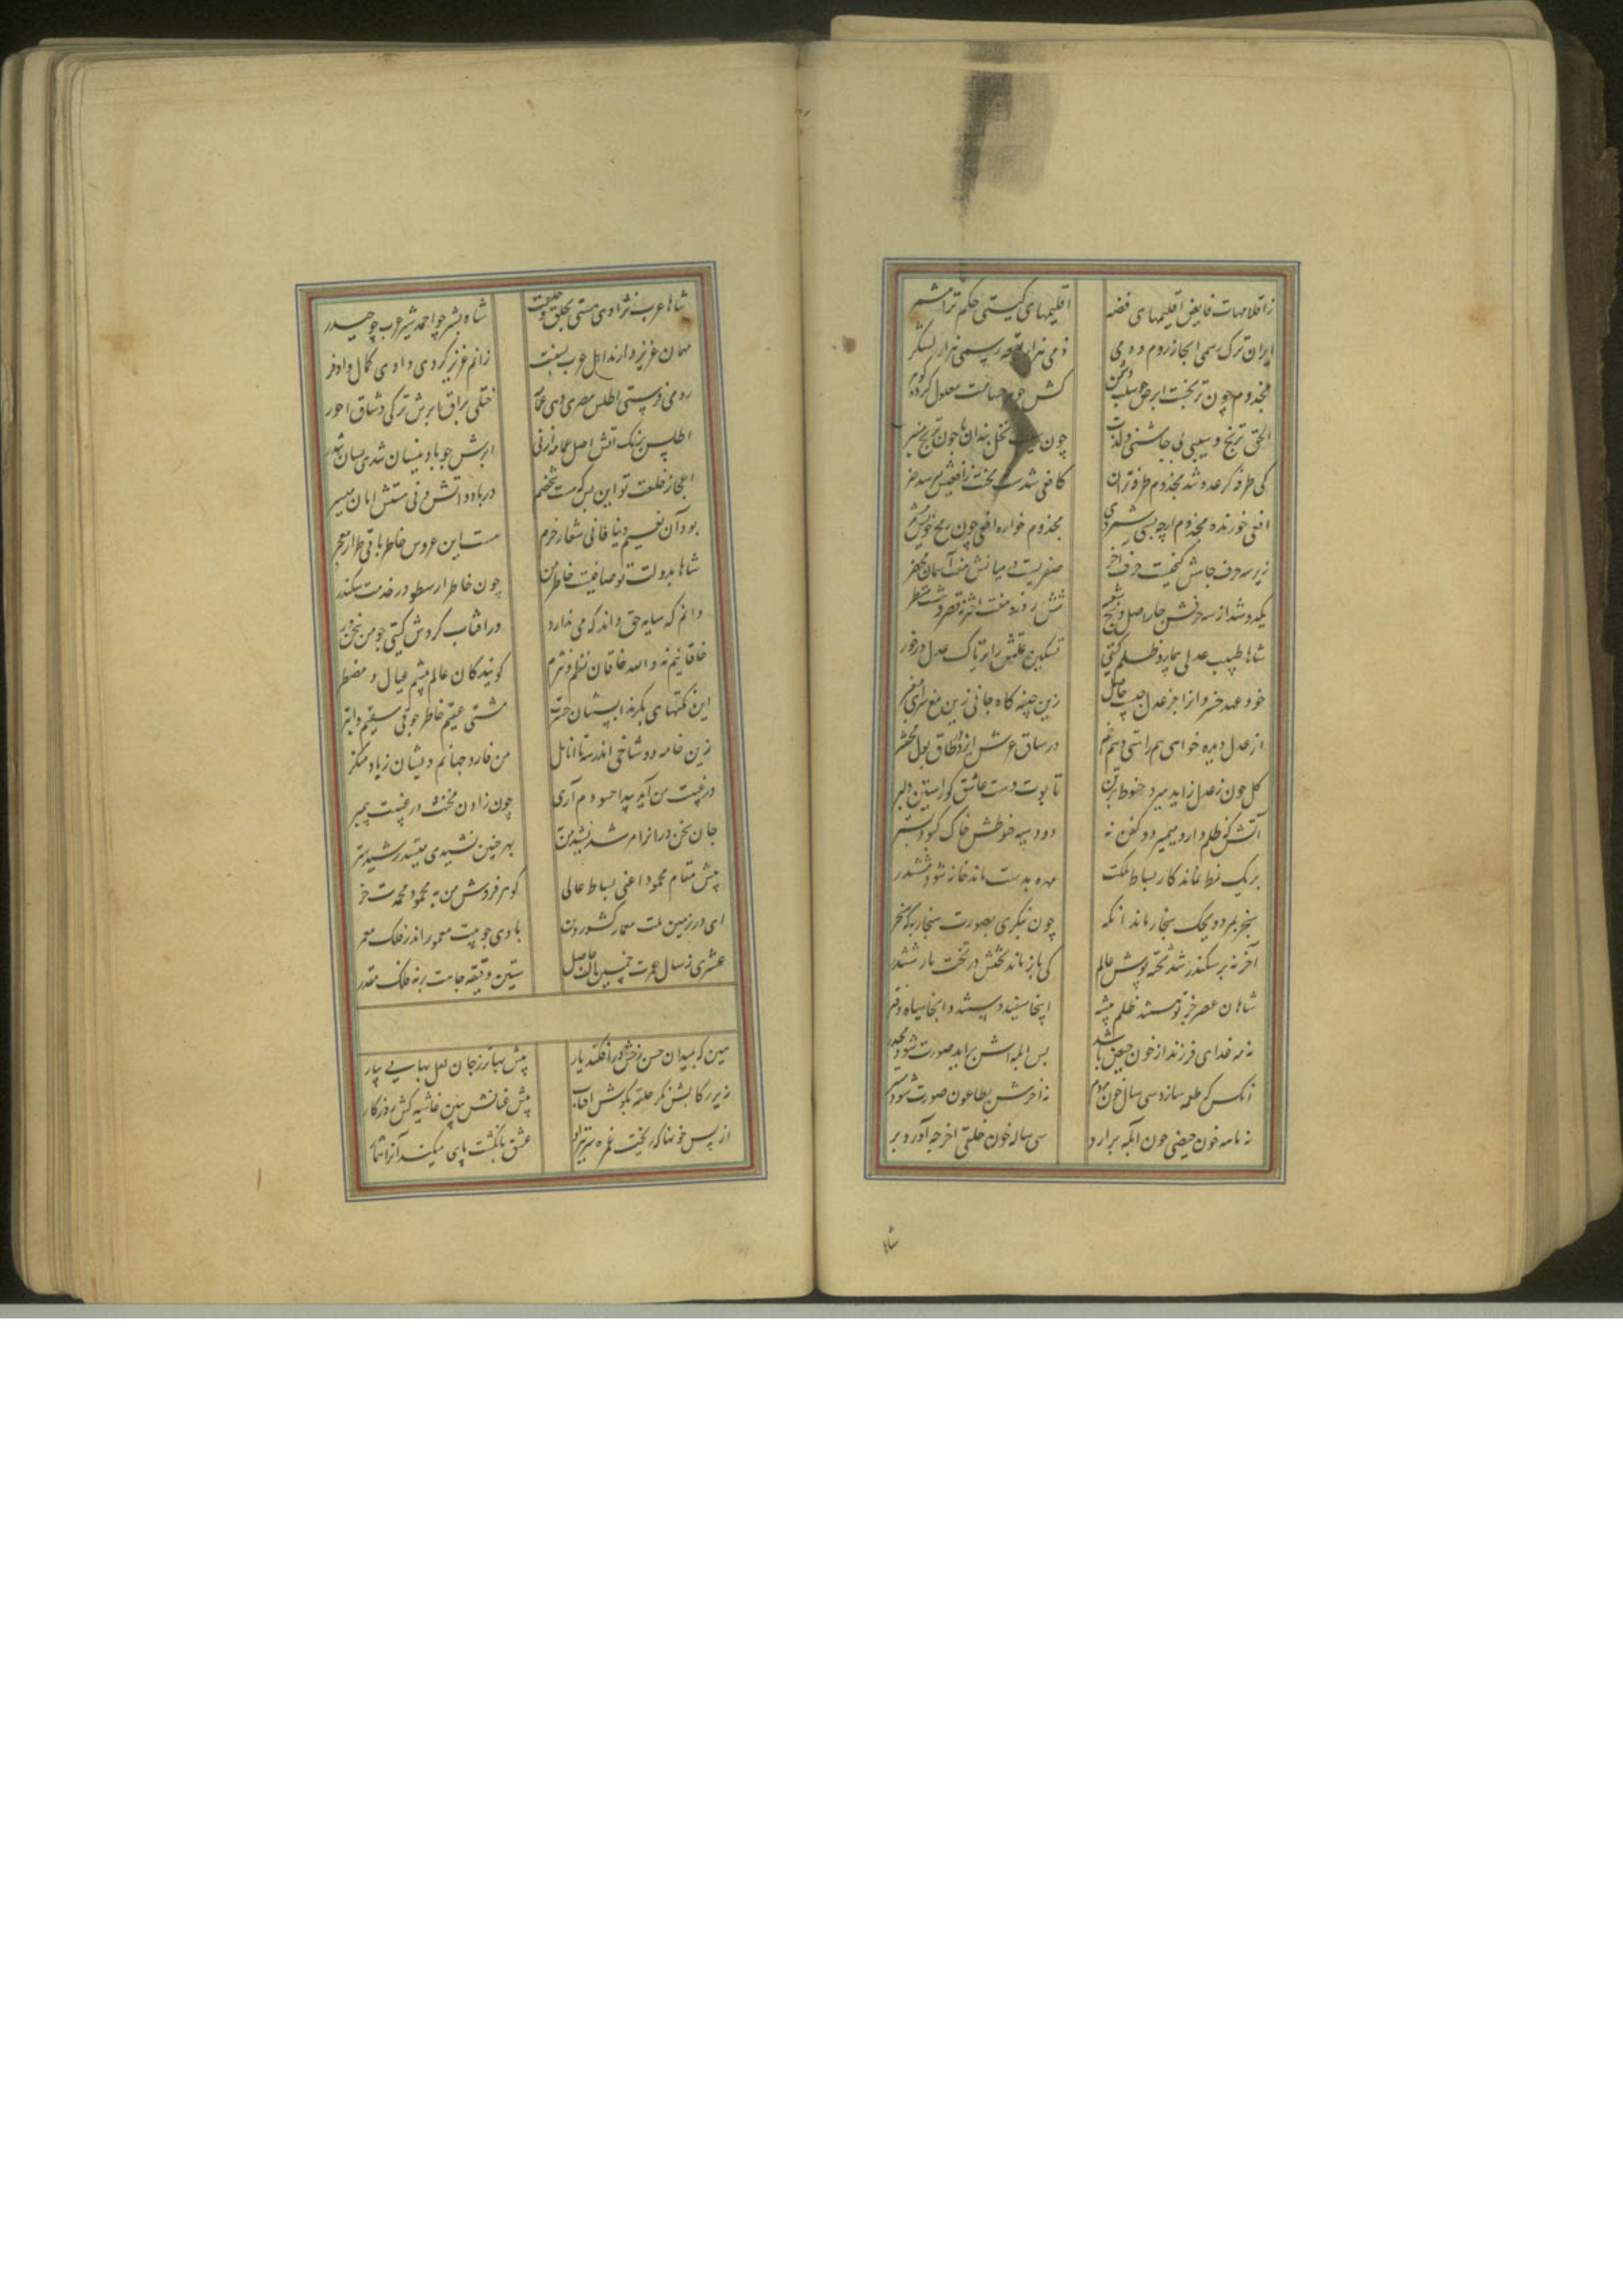 ز اقلامهات فایض اقلیمهای فضه اقلیمهای گیتی حکم ترا مشمر
ایران ترک رسمی ابخاز روم
مجذوم چون ترنجست ابرص چو سیب دشمن کش جوهر حسامت معلول کرد گوهر
الحق ترنج و سیبی بی چاشنی و لذت چون سیب نخل بندان یا چون ترنج منبر
کی طرفه گر عدو شد مجذوم طرفه تر آن کافعی شدست بختت زافعیش میرسد ضر
افعی خورنده مجذوم ار چه بسی شمردی مجذوم خواره افعی چون رمح خویش
زیر سه حرف جامش گنجیست حرف آخر صفریست در میانش هفت آسمان
یک دو شد از سه حرفش چار اصل و پنج شعبه شش روز و هفت اختر نه قصر و هشت منظر
شاها طبیب عدلی بیمار ظلم گیتی تسکین علتش را تریاک عدل درخور
خود عهد خسروان را جز عدل چیست حاصل زین چینه گاه جانی زین مغ سرای
از عدل دیده خواهی هم راستی و هم خم در ساق عرش ایزد در طاق پول محشر
گل چون ز عدل زاید میرد حنوط بر تن تابوت دست عاشق گور آستین دلبر
آتش که ظلم دارد میمیرد و کفن نه دود سیه حنوطش خاک کبود بستر
بر یک نمط نماند کار بساط ملکت مهره بدست ماند خانه شود مششدر
سنجر بمرد ویحک سنجار ماند آنکه چون بنگری بصورت سنجار به که سنجر
آخر نه بر سکندر شد تخته پوش عالم کی باز ماند تختش در تخت بار ششدر
شاهان عصر جز تو هستند ظلم پیشه اینجا سپید دستند و آنجا سیاه دفتر
نه مه غذای فرزند از خون حیض باشد پس آبله اش برآید صورت شود مجدر
آنکس که طعمه سازد سی سال خون مردم نه آخرش بطاعون صورت شود
نه ماهه خون حیضی چون آبله برآرد سی ساله خون خلقی آخر چه آورد بر
شاها
شاها عرب نژادی هستی بخلق و خلقت شاه بشر چو احمد شیر عرب چو حیدر
مهمان عزیز دارند اهل عرب بسنت زانم عزیز کردی دادی کمال وافر
رومی فرستی اطلس مصری دهی عمامه ختلی براق ابرش ترکی وشاق احور
اطلس برنگ آتش اصل عمامه از نی ابرش چو باد نیسان تندی بسان تندر
اعجاز خلعت تو این بس که هست شخصم در باد و آتش و نی هستش امان میسر
بود آن نعیم دنیا فانی شعار خرم هست این عروس خاطر باقی طراز معجر
شاها بدولت تو صافیست خاطر من چون خاطر ارسطو در خدمت سکندر
دانم که سایه حق داند که می ندارد در آفتاب گردش گیتی چو من سخنور
خاقانیم نه والله خاقان نظم و نثرم گویندگان عالم پیشم عیال و مضطر
این نکتهای بکرند ایشان حسرت مشتی عقیم خاطر جوقی سقیم و ابتر
زین خامه دو شاخی اندر سه تا انامل من فارد جهانم ویشان زیاد منکر
در غیبت من آید پیدا حسودم آری چون زادن مخنث در غیبت پیمبر
جان سخنوران را مرشد منم بهر چنین نشیدی میتسد رشید بستر
پیش مقام محمود اعنی بساط عالی گوهر فروش من به محمود محمدت خر
ای در زمین ملت معمار کشور دین بادی چو بیت معمور اندر فلک معمر
عشری ز سال عمرت خمسین الف حاصل ستین دقیقه جاهت بر نه فلک مقدر
هین که بمیدان حسن رخش درافکند یار پیش بهاتر ز جان لعل بهایی بیار
زیر رکابش نگر حلقه بگوش آفتاب پیش عنانش ببین غاشیه کش روزگار
از پس خونها که ریخت غمزه عشق بانگشت پای میکند آنرا شمار